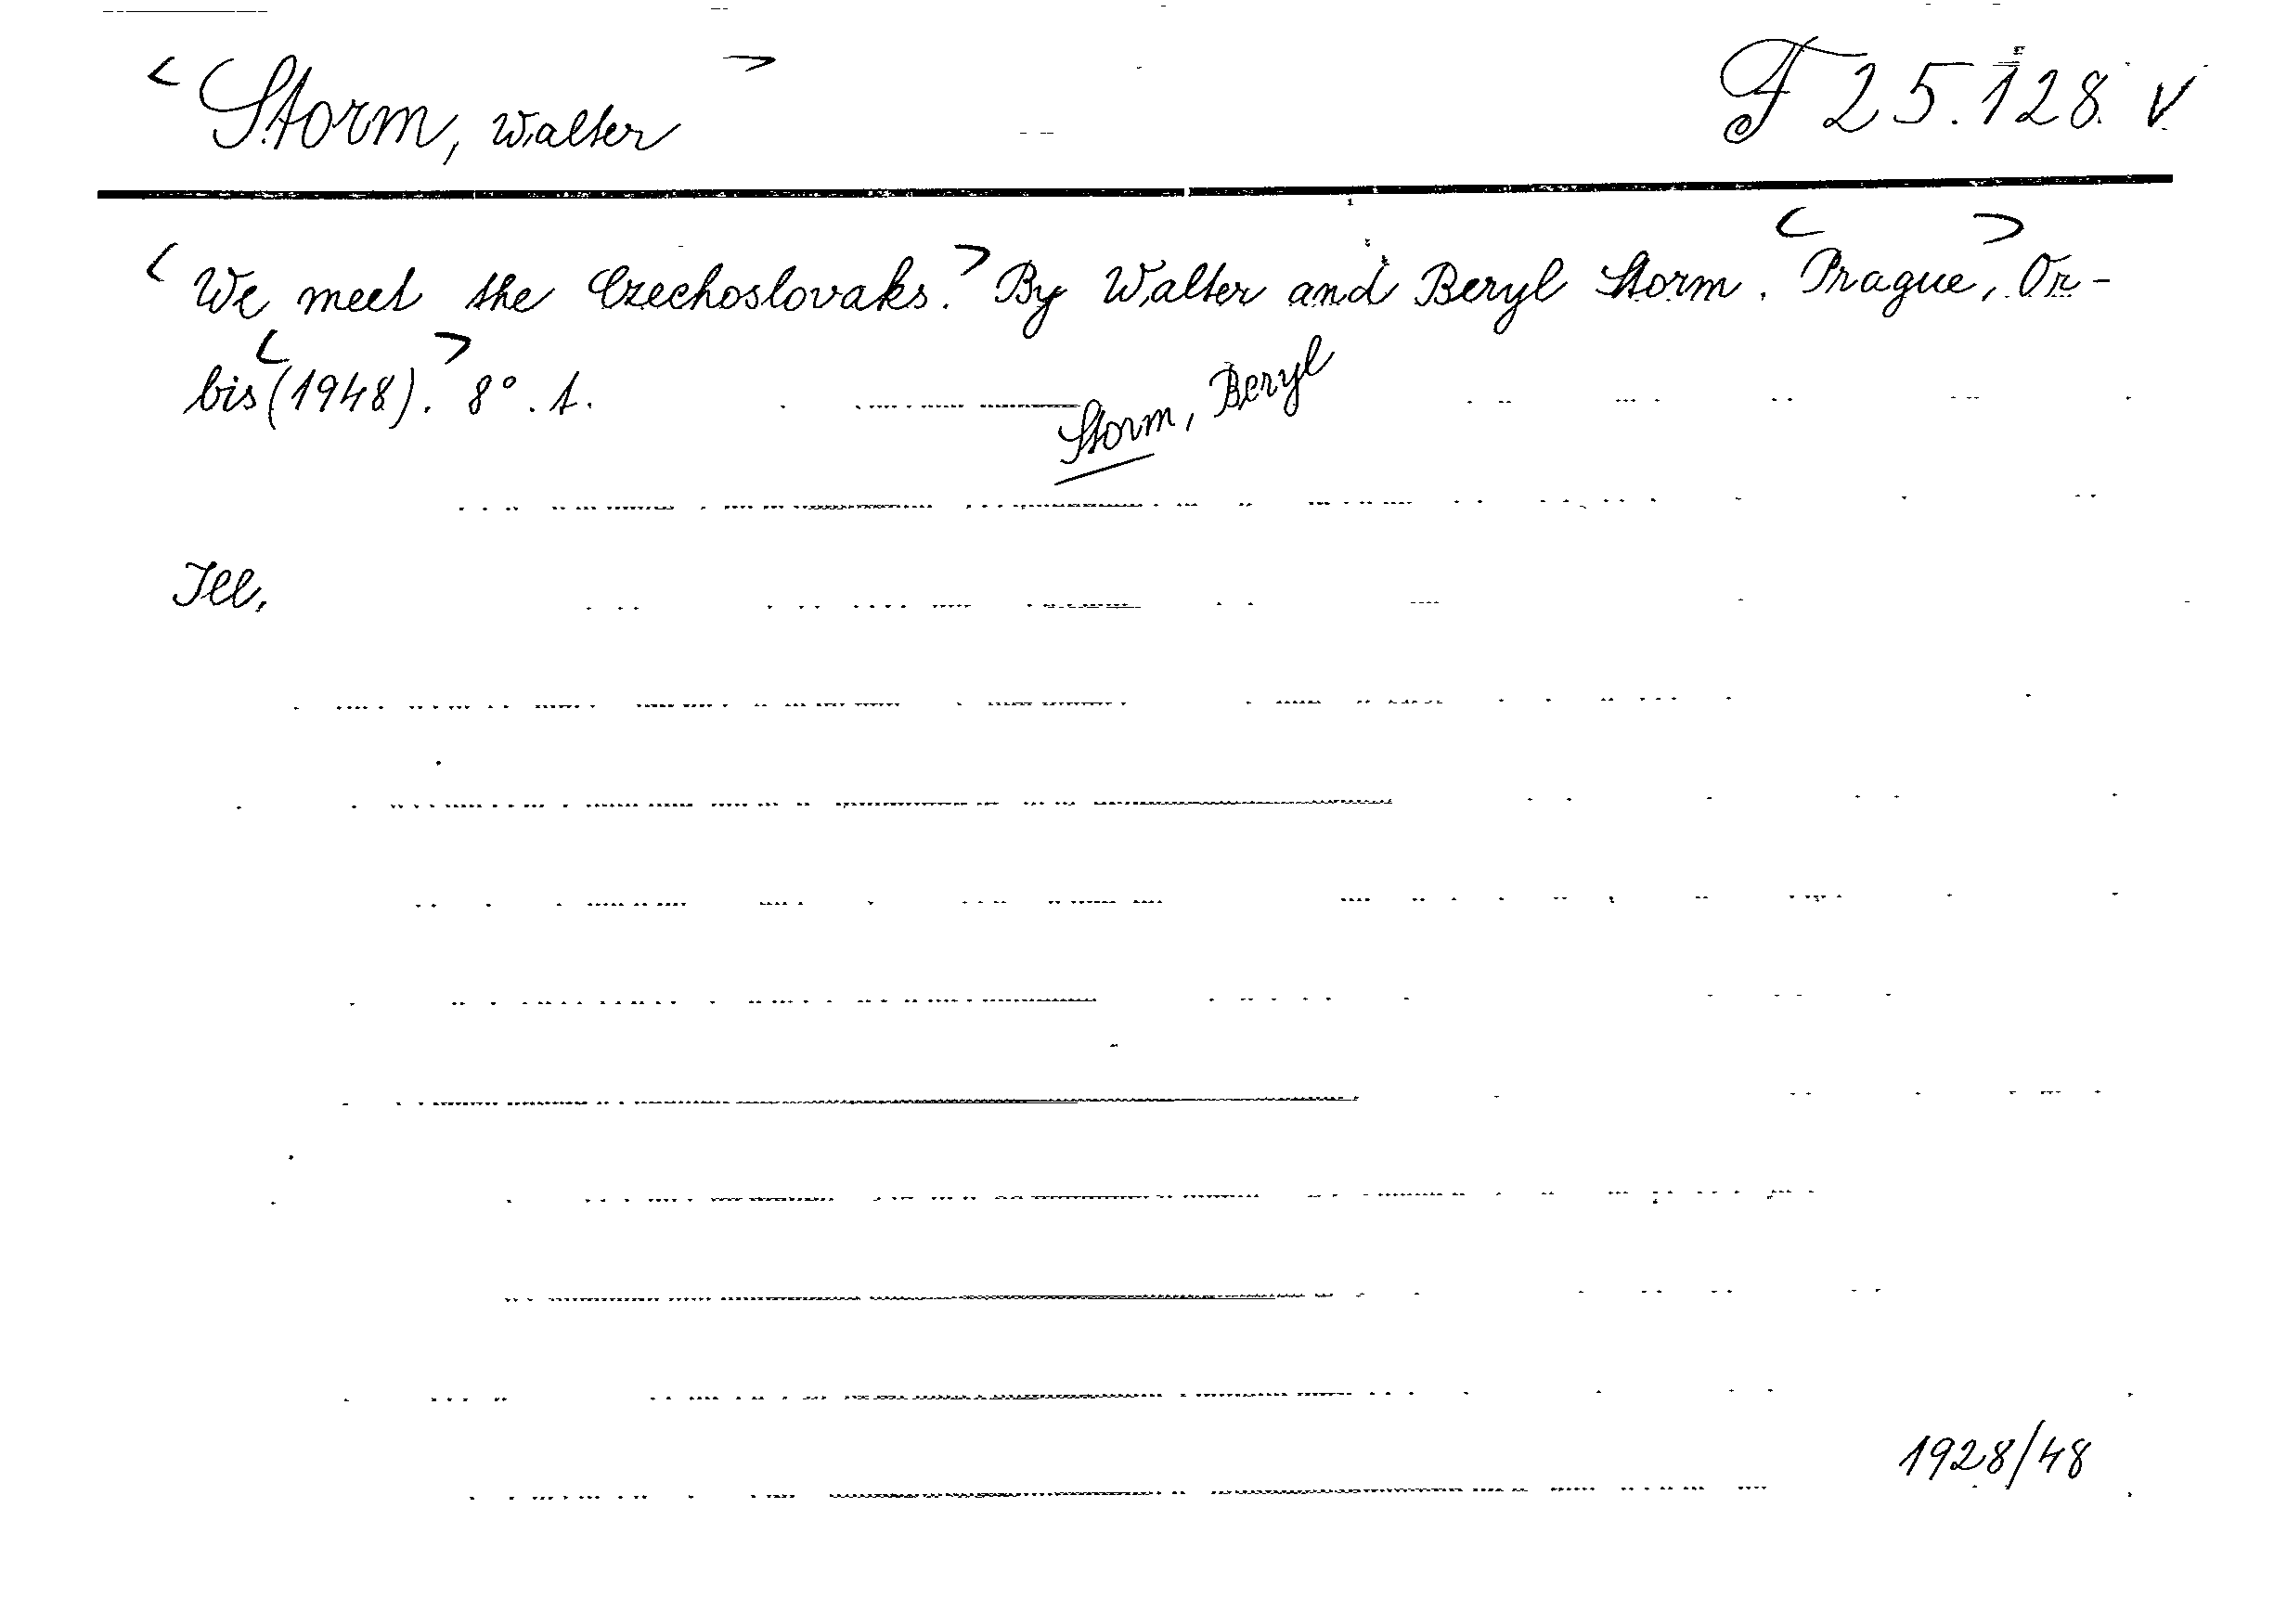 <Storm, Walter> F 25.128 V
<We meet the Czechoslovaks.> By Walter and Beryl Storm. <Prague>, Or-
bis <(1948).> 8°. 1.
Storm, Beryl
Ill.
1928/48